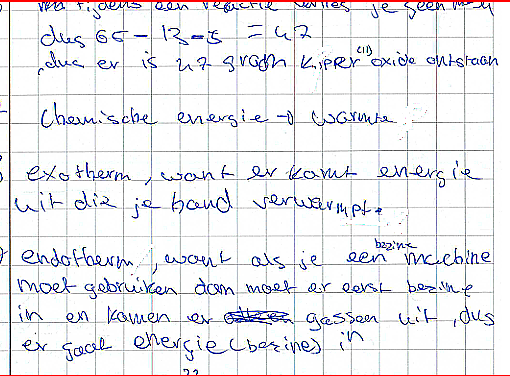 tijdens een reactie verlies je geen
dus 65 - 13 - 5 = 47
dus er is 47 gram koper(II) oxide ontstaan
Chemische energie → warmte
exotherm, want er komt energie
uit die je hand verwarmpt.
endotherm, want als je een bezine machine
moet gebruiken dan moet er eerst bezine
in en komen er gassen uit, dus
er gaat energie (bezine) in